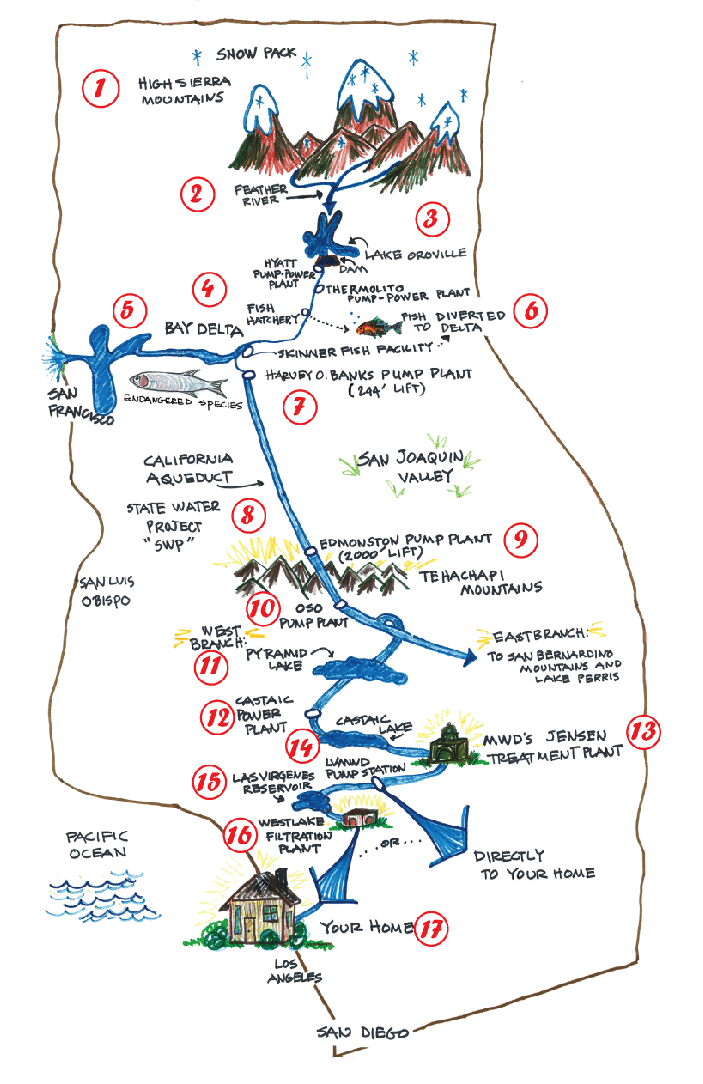 SNOW PACK
1
HIGH SIERRA
MOUNTAINS
2
FEATHER
RIVER
3
LAKE OROVILLE
DAM
HYATT
PUMP-POWER
PLANT
4
THERMOLITO
PUMP-POWER PLANT
FISH
HATCHERY
FISH DIVERTED
TO DELTA
6
5
BAY DELTA
SKINNER FISH FACILITY
SAN
FRANCISCO
ENDANGERED SPECIES
HARVEY O. BANKS PUMP PLANT
(244' LIFT)
7
CALIFORNIA
AQUEDUCT
SAN JOAQUIN
VALLEY
STATE WATER
PROJECT
"SWP"
8
EDMONSTON PUMP PLANT
(2000' LIFT)
9
TEHACHAPI
MOUNTAINS
SAN LUIS
OBISPO
10
OSO
PUMP PLANT
WEST
BRANCH:
11
PYRAMID
LAKE
EAST BRANCH:
TO SAN BERNARDINO
MOUNTAINS AND
LAKE PERRIS
12
CASTAIC
POWER
PLANT
14
CASTAIC
LAKE
MWD'S JENSEN
TREATMENT PLANT
13
15
LAS VIRGENES
RESERVOIR
LVMWD
PUMP STATION
16
WESTLAKE
FILTRATION
PLANT
... OR ...
DIRECTLY
TO YOUR HOME
PACIFIC
OCEAN
YOUR HOME
17
LOS
ANGELES
SAN DIEGO